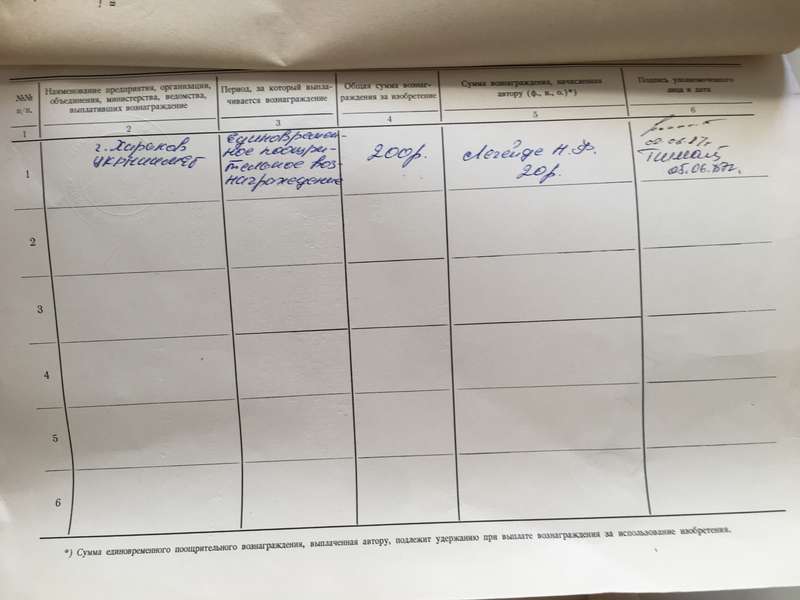 №№ п/п.
Наименование предприятия, организации, объединения, министерства, ведомства, выплативших вознаграждение
Период, за который выпла-
чивается вознаграждение
Общая сумма вознаг-
раждения за изобретение
Сумма вознаграждения, начисленная
автору (ф., и., о.)*)
Подпись уполномоченного
лица и дата
1
2
3
4
5
6
1
г. Харьков
УКРНИИМЕТ
единовремен-
ное поощри-
тельное воз-
награждение
200р.
Легейде Н.Ф.
20р.
05.06.87г.
2
3
4
5
6
*) Сумма единовременного поощрительного вознаграждения, выплаченная автору, подлежит удержанию при выплате вознаграждения за использование изобретения.